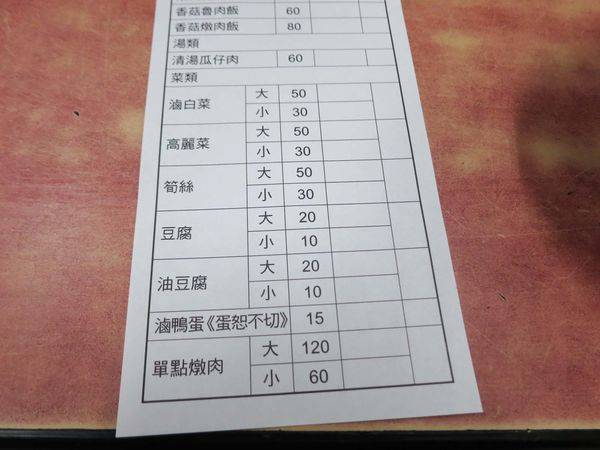 香菇魯肉飯 60
香菇燉肉飯 80
湯類
清湯瓜仔肉 60
菜類
滷白菜 大 50
小 30
高麗菜 大 50
小 30
筍絲 大 50
小 30
豆腐 大 20
小 10
油豆腐 大 20
小 10
滷鴨蛋《蛋恕不切》 15
單點燉肉 大 120
小 60